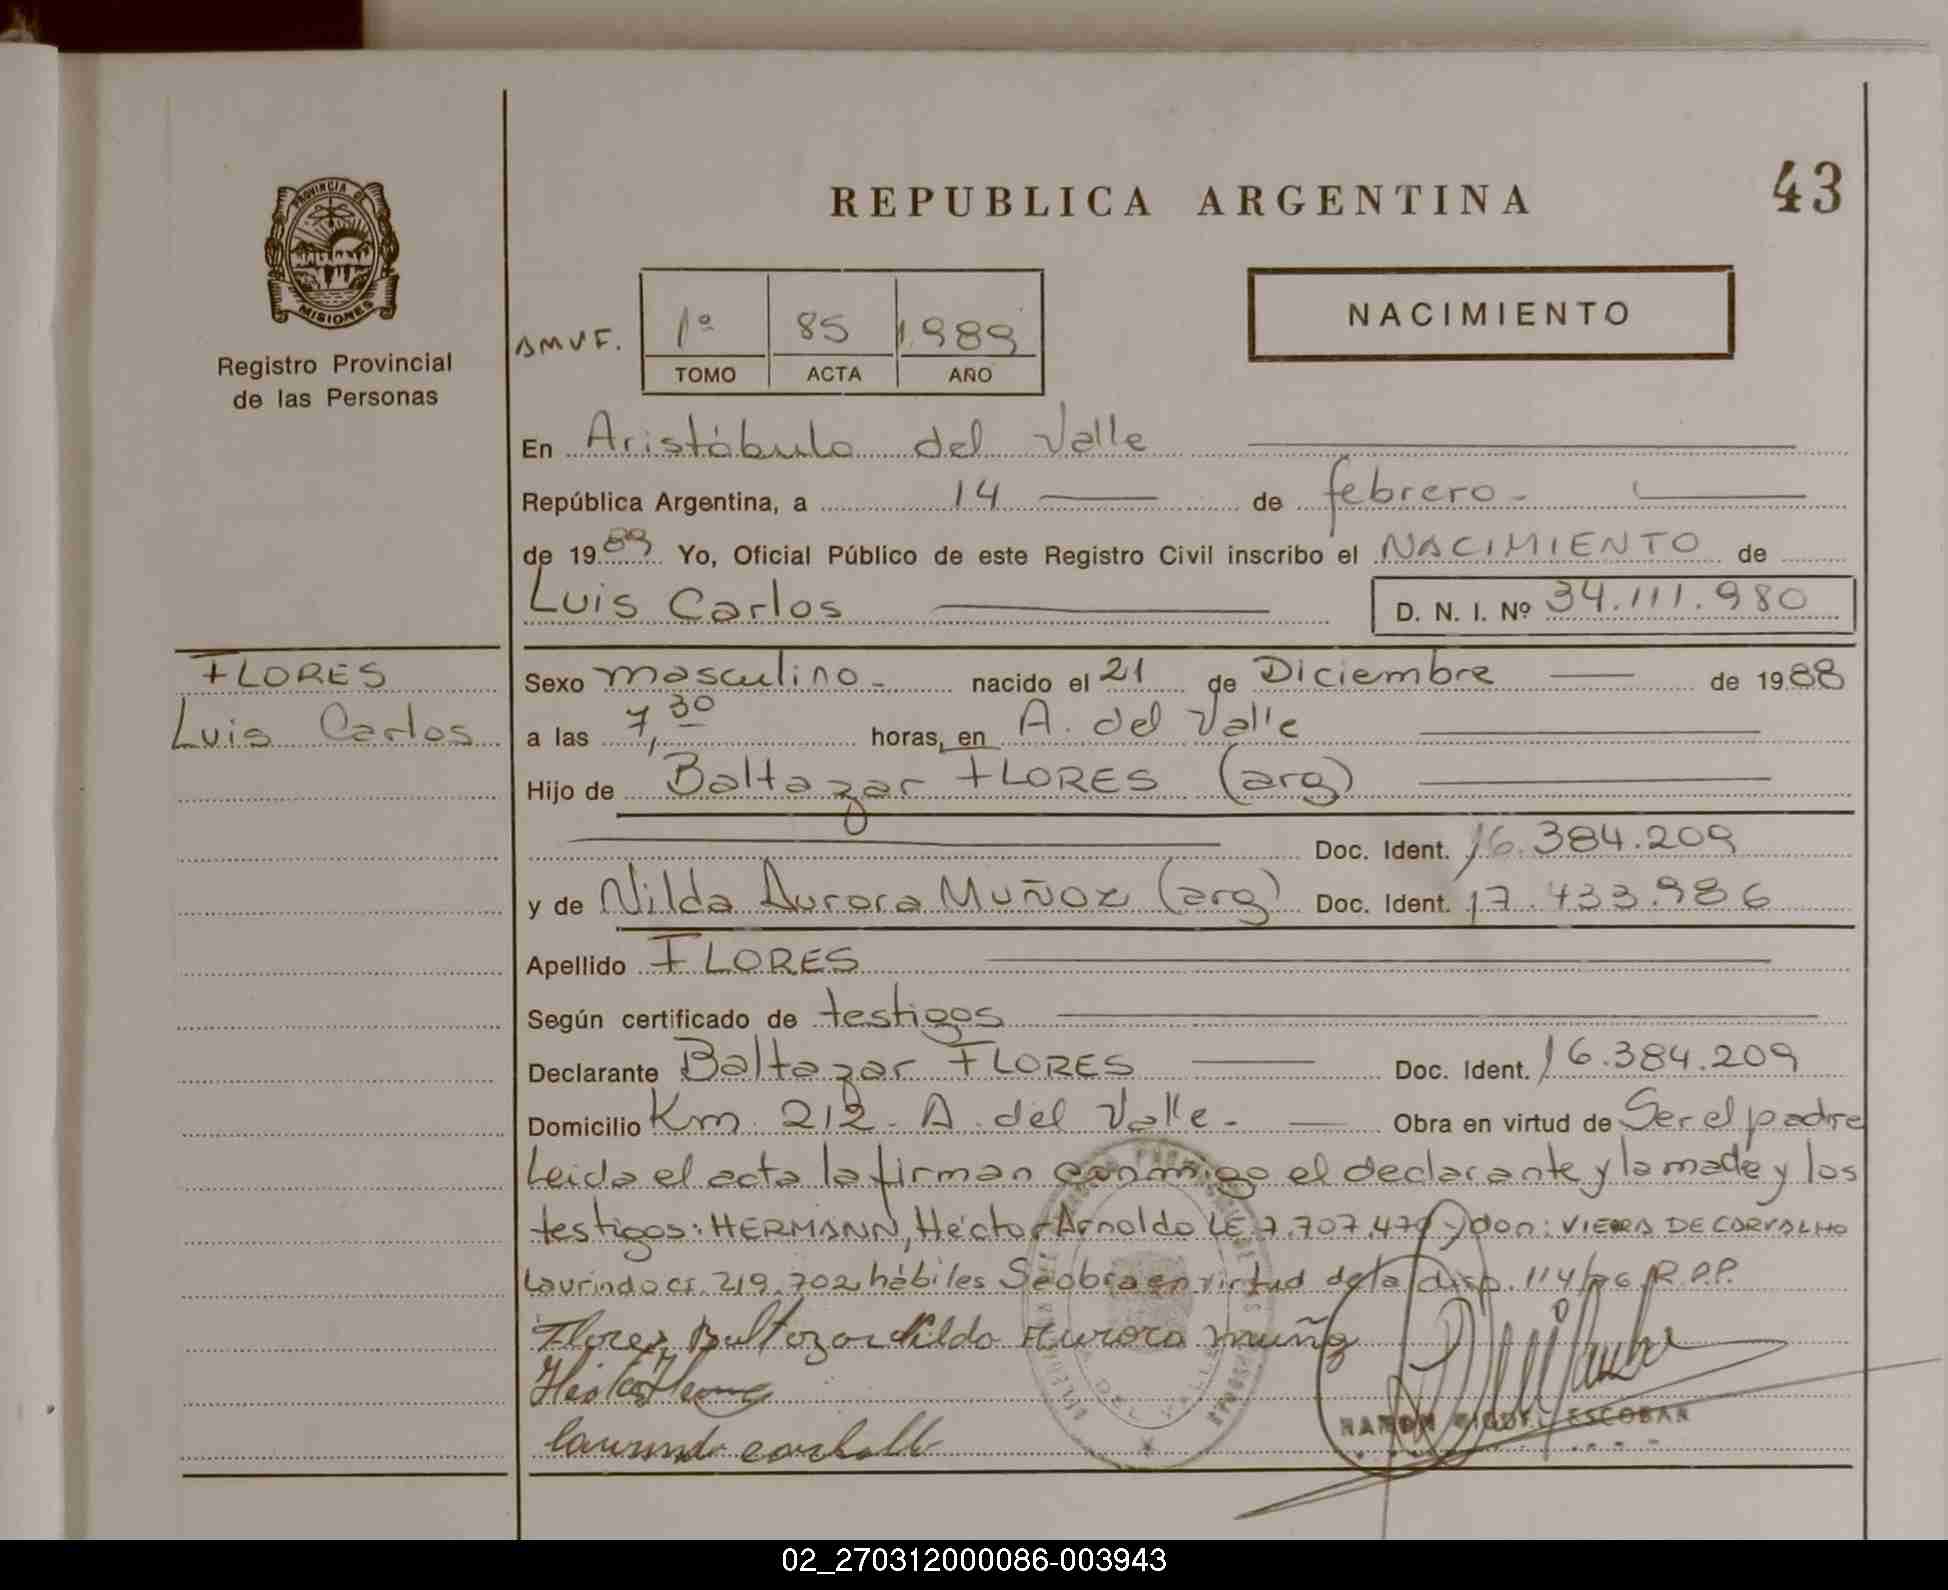 REPUBLICA ARGENTINA
43
PROVINCIA DE
MISIONES
Registro Provincial
de las Personas
1º 85 1989
TOMO ACTA AÑO
NACIMIENTO
En Aristóbulo del Valle
República Argentina, a 14 de febrero
de 1989 Yo, Oficial Público de este Registro Civil inscribo el NACIMIENTO de
Luis Carlos D. N. I. Nº 34.111.980
FLORES
Luis Carlos
Sexo masculino nacido el 21 de Diciembre de 1988
a las 7,30 horas, en A. del Valle
Hijo de Baltazar FLORES (arg)
Doc. Ident. 16.384.209
y de Nilda Aurora MUÑOZ (arg) Doc. Ident. 17.433.986
Apellido FLORES
Según certificado de testigos
Declarante Baltazar FLORES Doc. Ident. 16.384.209
Domicilio Km 212 - A. del Valle - Obra en virtud de Ser el padre
Leida el acta la firman conmigo el declarante y la made y los
testigos: HERMANN, Héctor Arnoldo LE 7.707.479 y don: VIERA DE CARVALHO
Laurindo CI. 219.702 hábiles Se obra en virtud de la disp. 114/86 R.P.P.
Flores Baltozar Nildo Aurora muñz
RAMON MIGUEL ESCOBAR
02_270312000086-003943